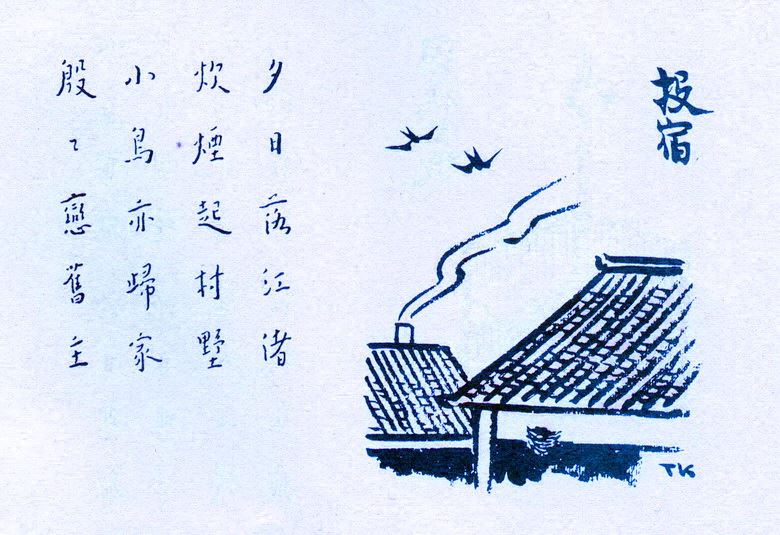 投宿
夕日落江渚
炊煙起村野
小鳥亦歸家
殷〻戀舊主
TK